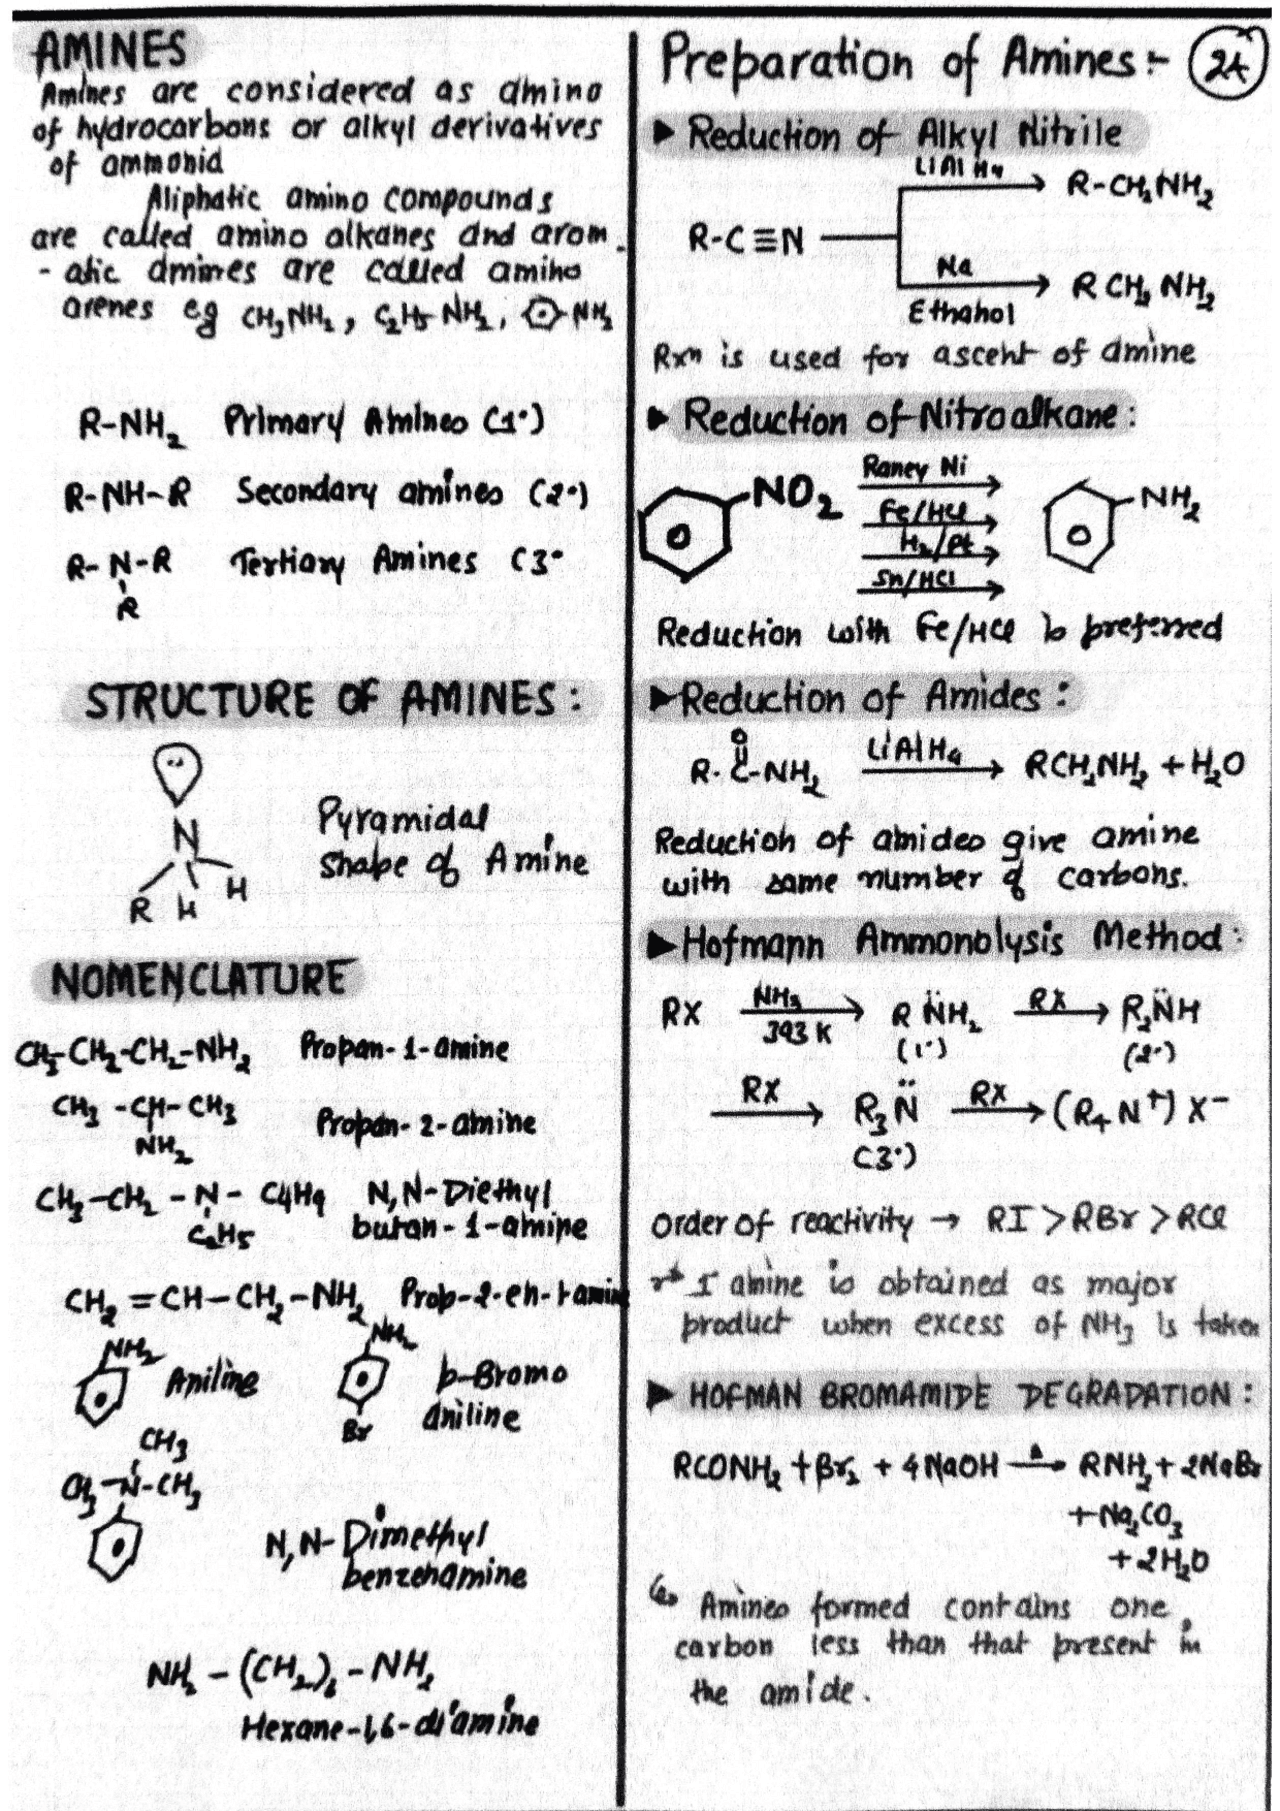 AMINES
Amines are considered as amino
of hydrocarbons or alkyl derivatives
of ammonia
Aliphatic amino compounds
are called amino alkanes and arom
- atic amines are called amino
arenes eg CH₃NH₂, C₂H₅-NH₂, -NH₂
R-NH₂ Primary Amines (1°)
R-NH-R Secondary amines (2°)
R-N-R Tertiary Amines (3°
R
STRUCTURE OF AMINES:
N
R H H
Pyramidal
Shape of Amine
NOMENCLATURE
CH₃-CH₂-CH₂-NH₂ Propan-1-amine
CH₃-CH-CH₃
NH₂
Propan-2-amine
CH₃-CH₂-N-C4H9 N,N-Diethyl
C₂H₅ butan-1-amine
CH₂=CH-CH₂-NH₂ Prop-2-en-1-amine
NH₂ Aniline
NH₂
Br
p-Bromo
aniline
CH₃
CH₃-N-CH₃
N,N-Dimethyl
benzenamine
NH₂-(CH₂)₆-NH₂
Hexane-1,6-diamine
Preparation of Amines:- 24
► Reduction of Alkyl Nitrile
R-C≡N
LiAlH₄ → R-CH₂NH₂
Na
Ethanol → RCH₂NH₂
Rxⁿ is used for ascent of amine
► Reduction of Nitroalkane:
NO₂
Raney Ni
Fe/HCl
H₂/Pt
Sn/HCl
NH₂
Reduction with Fe/HCl is preferred
► Reduction of Amides:
O
R-C-NH₂ LiAlH₄ → RCH₂NH₂ + H₂O
Reduction of amides give amine
with same number of carbons.
► Hofmann Ammonolysis Method:
RX NH₃ 393 K → R N̈H₂ RX → R₂N̈H
(1°) (2°)
RX → R₃N̈ RX → (R₄N⁺) X⁻
(3°)
Order of reactivity → RI > RBr > RCl
I amine is obtained as major
product when excess of NH₃ is taken
► HOFMAN BROMAMIDE DEGRADATION:
RCONH₂ + Br₂ + 4NaOH Δ→ RNH₂ + 2NaBr
+ Na₂CO₃
+ 2H₂O
Amines formed contains one
carbon less than that present in
the amide.